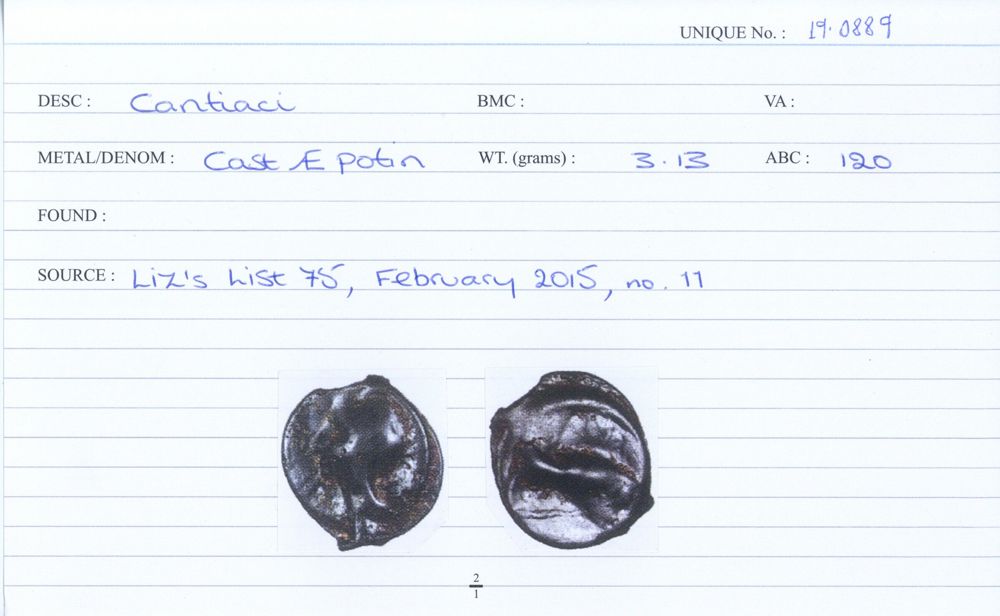 UNIQUE No. : 19.0889
DESC : Cantiaci BMC : VA :
METAL/DENOM : Cast Æ potin WT. (grams) : 3.13 ABC : 120
FOUND :
SOURCE : Liz's List 75, February 2015, no. 11
2
1